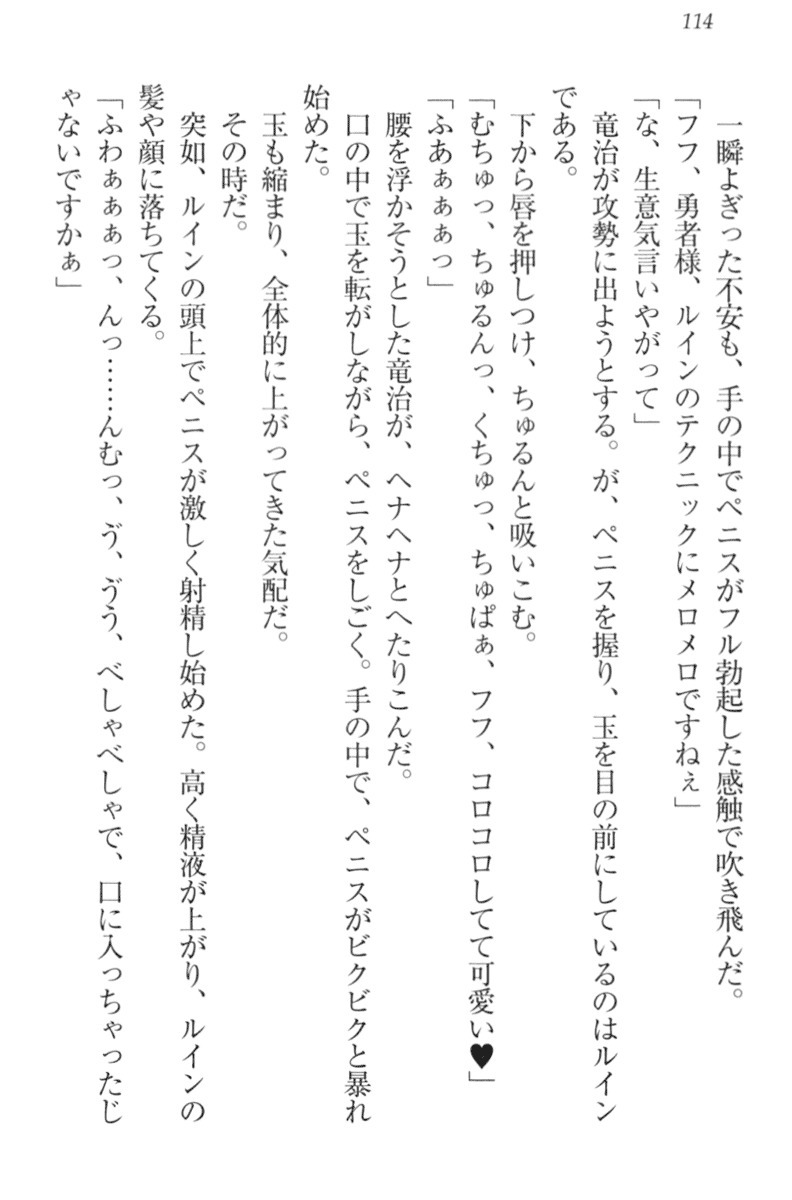 114
一瞬よぎった不安も、手の中でペニスがフル勃起した感触で吹き飛んだ。
「フフ、勇者様、ルインのテクニックにメロメロですねぇ」
「な、生意気言いやがって」
竜治が攻勢に出ようとする。が、ペニスを握り、玉を目の前にしているのはルイン
である。
下から唇を押しつけ、ちゅるんと吸いこむ。
「むちゅっ、ちゅるんっ、くちゅっ、ちゅぱぁ、フフ、コロコロしてて可愛い♥」
「ふあぁぁぁっ」
腰を浮かそうとした竜治が、ヘナヘナとへたりこんだ。
口の中で玉を転がしながら、ペニスをしごく。手の中で、ペニスがビクビクと暴れ
始めた。
玉も縮まり、全体的に上がってきた気配だ。
その時だ。
突如、ルインの頭上でペニスが激しく射精し始めた。高く精液が上がり、ルインの
髪や顔に落ちてくる。
「ふわぁぁぁっ、んっ……んむっ、ゔ、ゔう、べしゃべしゃで、口に入っちゃったじ
ゃないですかぁ」